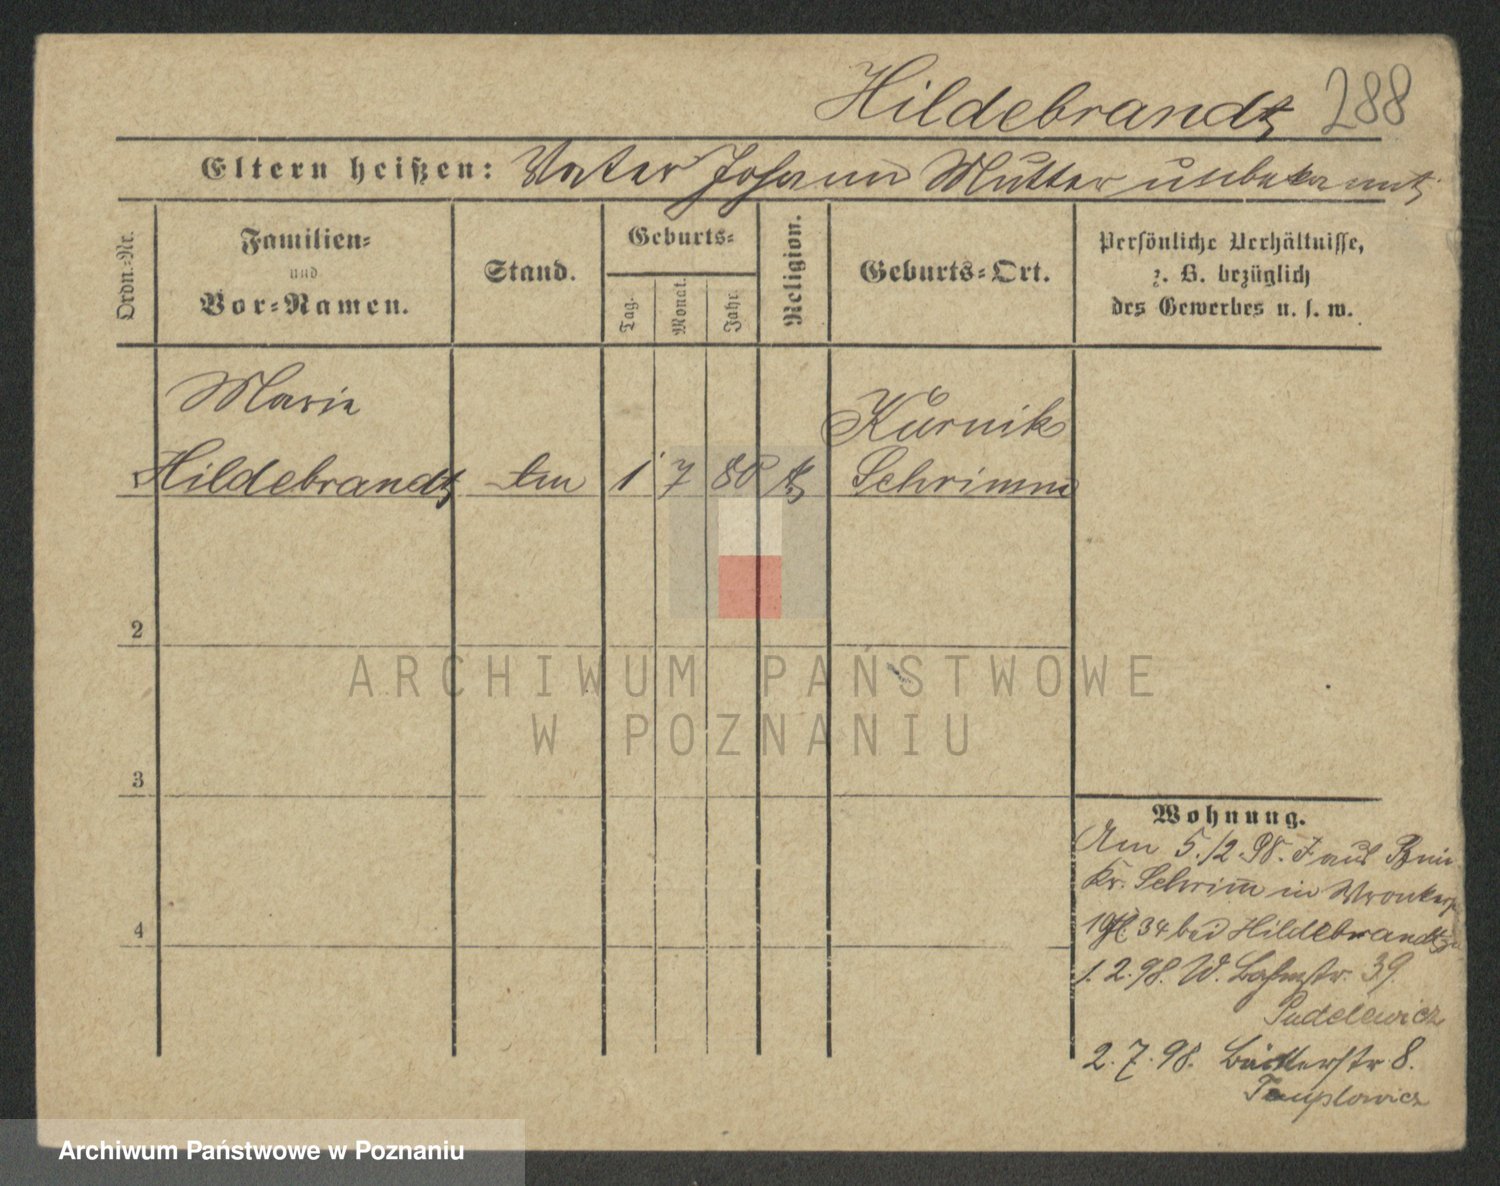 Hildebrandt 288
Eltern heißen: Vater Johann Mutter unbekannt
Ordn.-Nr.
Familien-
und
Vor-Namen.
Stand.
Geburts-
Tag.
Monat.
Jahr
Religion.
Geburts-Ort.
Persönliche Verhältnisse,
z. B. bezüglich
des Gewerbes u. s. w.
Marie
Hildebrandt 1 7 80 k
Kurnik
Schrimm
2
3
4
ARCHIWUM PAŃSTWOWE
W POZNANIU
Wohnung.
Am 5./2.98. aus Bnin
Kr. Schrimm in Wronker
34 bei Hildebrandt
1.2.98. W. Bahnstr. 39.
Pudelewicz
2.7.98. Bäckerstr 8.
Archiwum Państwowe w Poznaniu